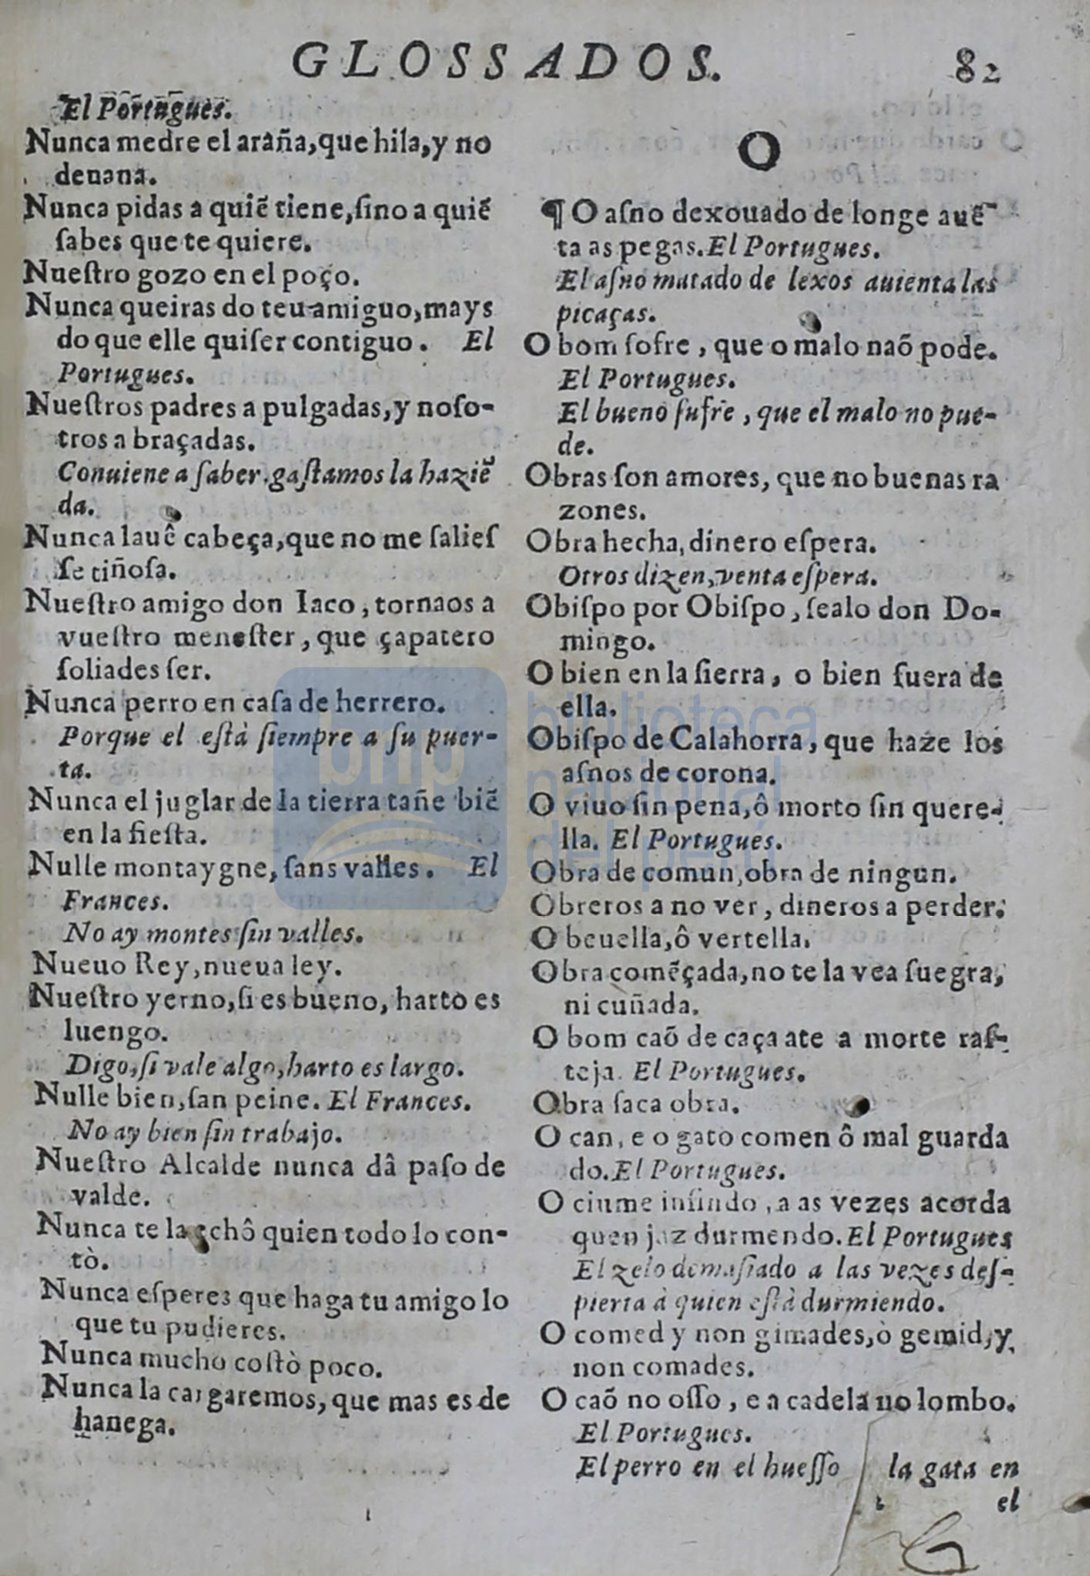 GLOSSADOS. 82
El Portugues.
Nunca medre el araña, que hila, y no
deuana.
Nunca pidas a quiẽ tiene, ſino a quiẽ
ſabes que te quiere.
Nueſtro gozo en el poço.
Nunca queiras do teu amiguo, mays
do que elle quiſer contiguo. El
Portugues.
Nueſtros padres a pulgadas, y noſo-
tros a braçadas.
Conuiene a ſaber. gaſtamos la haziẽ
da.
Nunca lauê cabeça, que no me ſalieſ
ſe tiñoſa.
Nueſtro amigo don Iaco, tornaos a
vueſtro meneſter, que çapatero
ſoliades ſer.
Nunca perro en caſa de herrero.
Porque el eſtà ſiempre a ſu puer-
ta.
Nunca el juglar de la tierra tañe biẽ
en la fieſta.
Nulle montaygne, ſans valles. El
Frances.
No ay montes ſin valles.
Nueuo Rey, nueua ley.
Nueſtro yerno, ſi es bueno, harto es
luengo.
Digo, ſi vale algo, harto es largo.
Nulle bien, ſan peine. El Frances.
No ay bien ſin trabajo.
Nueſtro Alcalde nunca dâ paſo de
valde.
Nunca te la echô quien todo lo con-
tò.
Nunca eſperes que haga tu amigo lo
que tu pudieres.
Nunca mucho coſtò poco.
Nunca la cargaremos, que mas es de
hanega.
O
¶ O aſno dexouado de longe auẽ
ta as pegas. El Portugues.
El aſno matado de lexos auienta las
picaças.
O bom ſofre, que o malo naõ pode.
El Portugues.
El bueno ſufre, que el malo no pue-
de.
Obras ſon amores, que no buenas ra
zones.
Obra hecha, dinero eſpera.
Otros dizen, venta eſpera.
Obiſpo por Obiſpo, ſealo don Do-
mingo.
O bien en la ſierra, o bien fuera de
ella.
Obiſpo de Calahorra, que haze los
aſnos de corona.
O viuo ſin pena, ô morto ſin quere-
lla. El Portugues.
Obra de comun, obra de ningun.
Obreros a no ver, dineros a perder.
O beuella, ô vertella.
Obra comẽçada, no te la vea ſuegra,
ni cuñada.
O bom caõ de caça ate a morte raſ-
teja. El Portugues.
Obra ſaca obra.
O can, e o gato comen ô mal guarda
do. El Portugues.
O ciume inſindo, a as vezes acorda
quen jaz durmendo. El Portugues
El zelo demaſiado a las vezes deſ-
pierta à quien eſtà durmiendo.
O comed y non gimades, ò gemid, y
non comades.
O caõ no oſſo, e a cadela no lombo.
El Portugues.
El perro en el hueſſo la gata en
el
bnp biblioteca
nacional
del perú